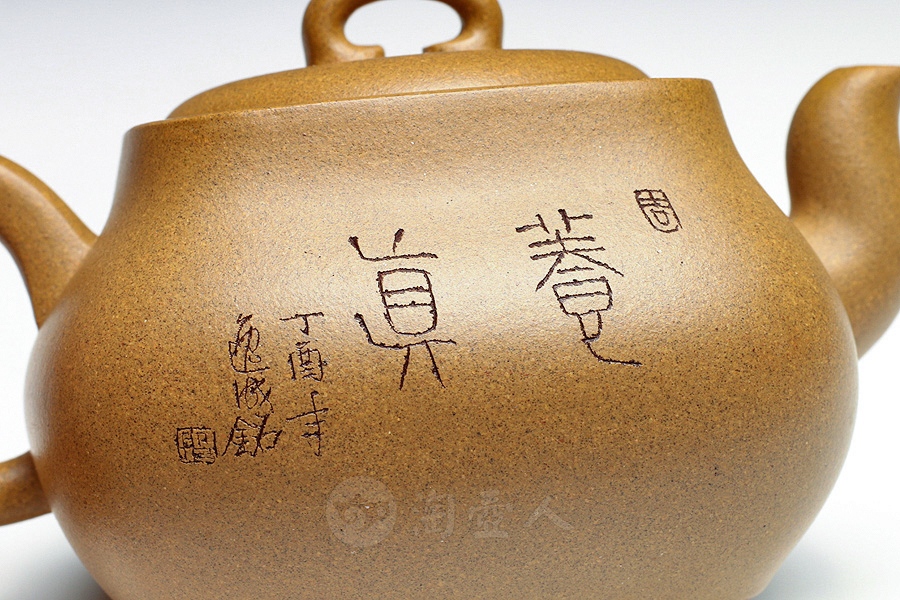 養真
丁酉年
逸成銘
陶壶人